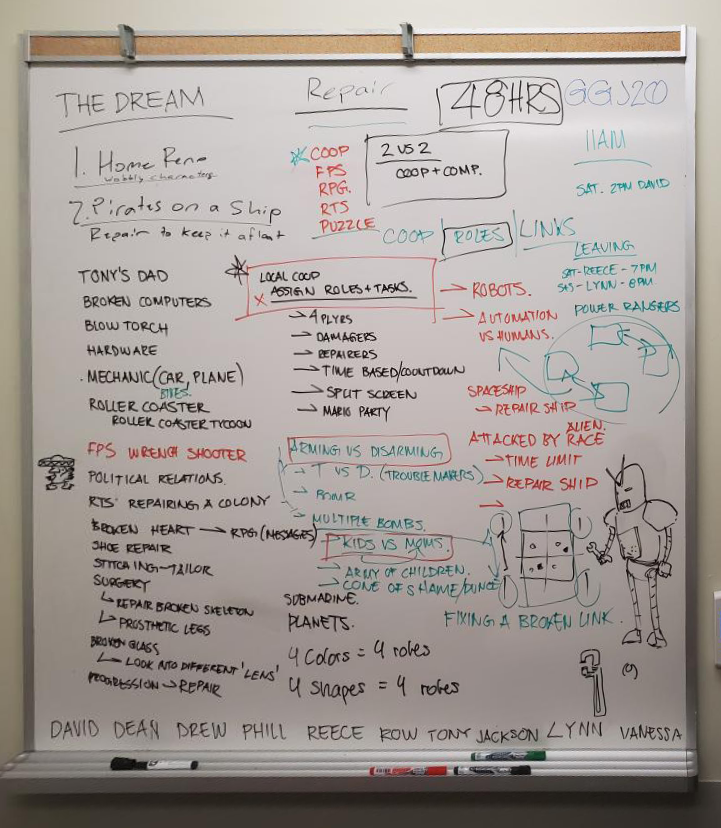 THE DREAM
Repair
48HRS
GGJ20
1. Home Reno
wobbly characters
2. Pirates on a Ship
Repair to keep it afloat
COOP
FPS
RPG.
RTS
PUZZLE
2 VS 2
COOP + COMP.
11AM
SAT. 2PM DAVID
COOP / ROLES / LINKS
LEAVING
SAT-REECE-7PM
SAT-LYNN-8PM
POWER RANGERS
TONY'S DAD
BROKEN COMPUTERS
BLOW TORCH
HARDWARE
MECHANIC (CAR, PLANE)
BIKES.
ROLLER COASTER
ROLLER COASTER TYCOON
FPS WRENCH SHOOTER
POLITICAL RELATIONS.
RTS REPAIRING A COLONY
BROKEN HEART → RPG (MESSAGES)
SHOE REPAIR
STITCHING-TAILOR
SURGERY
↳ REPAIR BROKEN SKELETON
↳ PROSTHETIC LEGS
BROKEN GLASS
↳ LOOK INTO DIFFERENT 'LENS'
PROGRESSION → REPAIR
LOCAL COOP
X ASSIGN ROLES + TASKS.
→ 4 PLYRS
→ DAMAGERS
→ REPAIRERS
→ TIME BASED/COUNTDOWN
→ SPLIT SCREEN
→ MARIO PARTY
ARMING VS DISARMING
→ T VS D. (TROUBLE MAKERS)
→ MULTIPLE BOMBS.
KIDS VS MOMS.
→ ARMY OF CHILDREN.
→ CONE OF SHAME/DUNCE
SUBMARINE.
PLANETS.
4 colors = 4 roles
4 shapes = 4 roles
→ ROBOTS.
→ AUTOMATION
VS HUMANS.
SPACESHIP
→ REPAIR SHIP
ALIEN.
ATTACKED BY RACE
→ TIME LIMIT
→ REPAIR SHIP
FIXING A BROKEN LINK.
DAVID DEAN DREW PHILL REECE ROW TONY JACKSON LYNN VANESSA